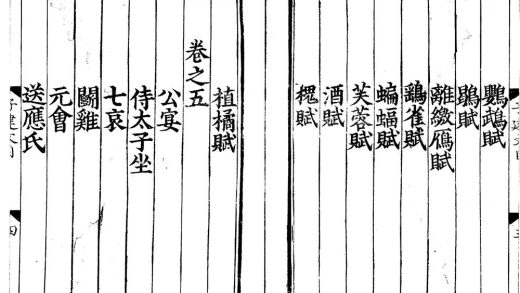 鸚鵡賦
鶡賦
離繳鴈賦
鷂雀賦
蝙蝠賦
芙蓉賦
酒賦
槐賦
植橘賦
卷之五
公宴
侍太子坐
七哀
鬭雞
元會
送應氏